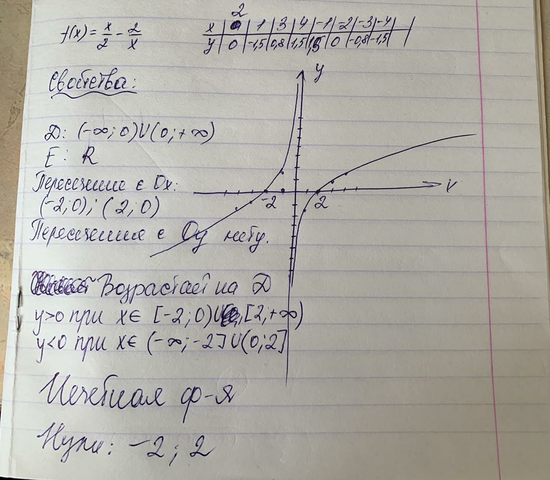 2
f(x) = x/2 - 2/x
x | 0 | 1 | 3 | 4 | -1 | 2 | -3 | -4 |
y | 0 | -1,5 | 0,8 | 1,5 | 1,5 | 0 | -0,8 | -1,5 |
Свойства:
y
D: (-∞; 0)U(0; +∞)
E: R
Пересечение с Ox:
(-2,0); (2,0)
-2 2 x
Пересечение с Oy нету.
Возрастает на D
y>0 при x∈ [-2; 0)U [2, +∞)
y<0 при x∈ (-∞; -2]U(0; 2]
Нечетная ф-я
Нули: -2; 2